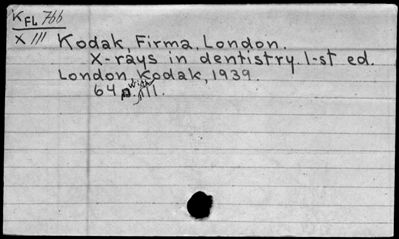 KFL 766
X III Kodak, Firma, London.
X-rays in dentistry. 1-st ed.
London, Kodak, 1939.
64 p. with ill.